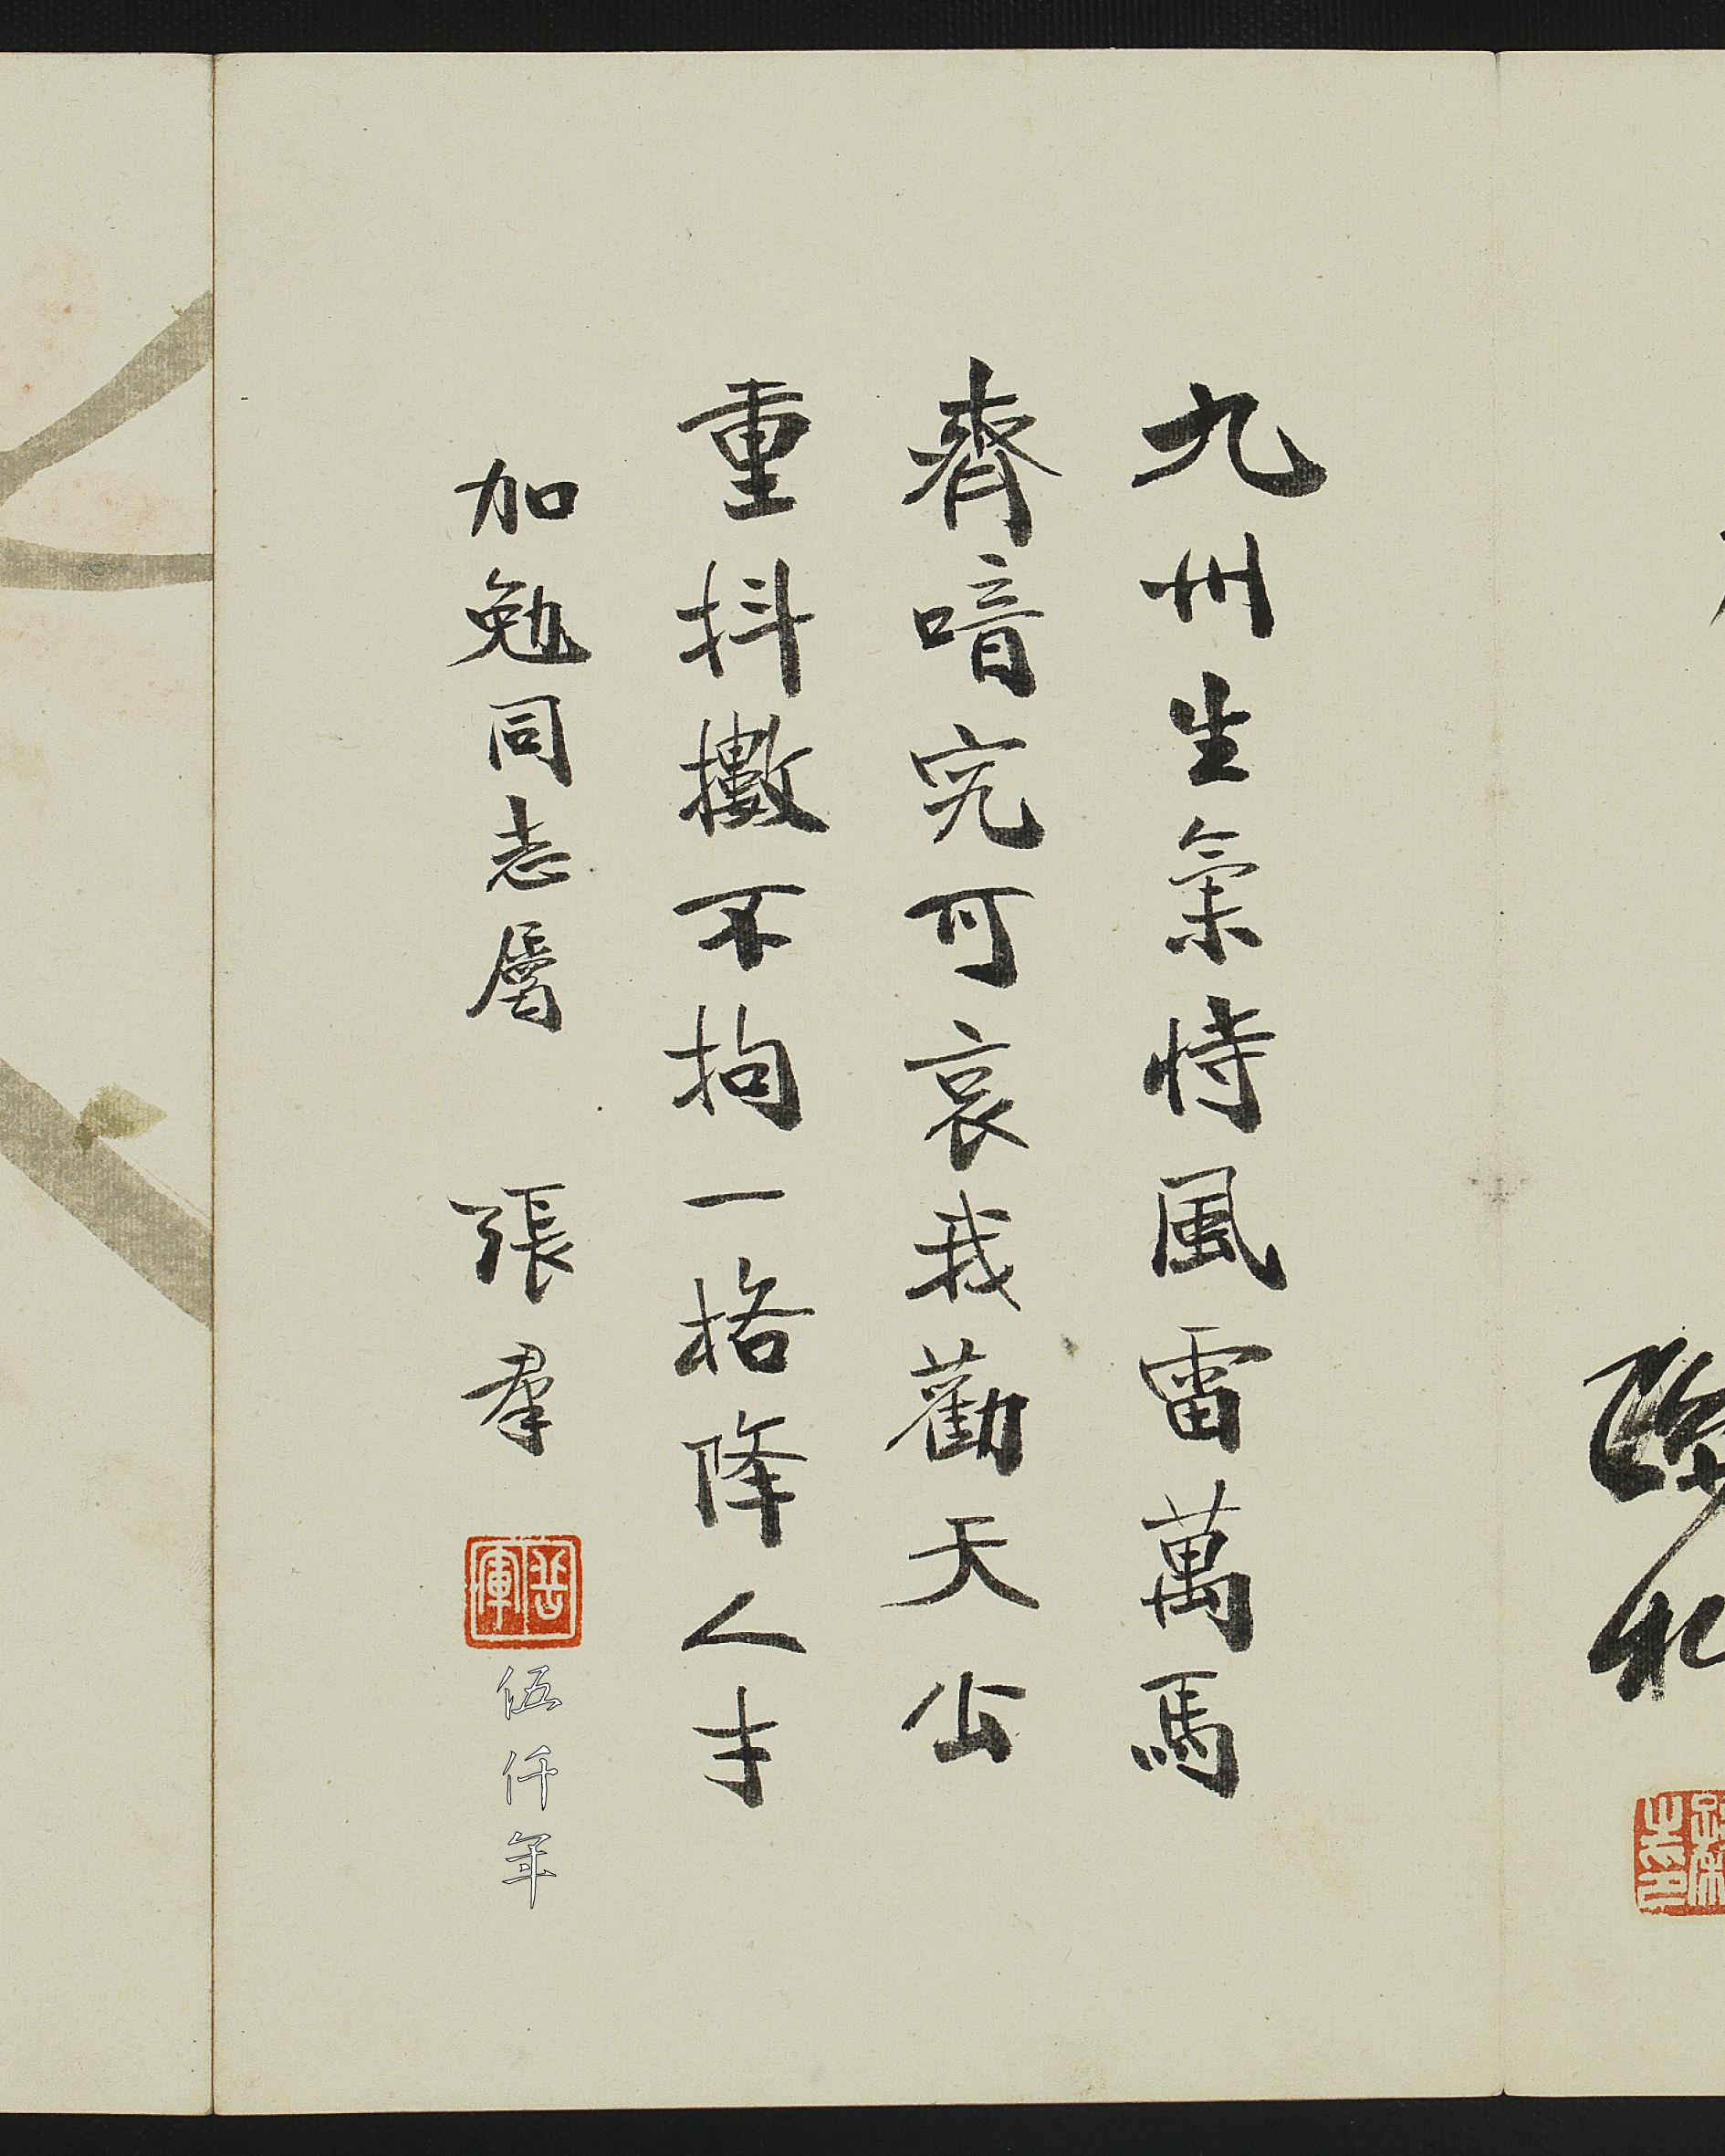 九州生氣恃風雷萬馬
齊喑究可哀我勸天公
重抖擻不拘一格降人才
加勉同志屬 張羣
岳軍
伍仟年